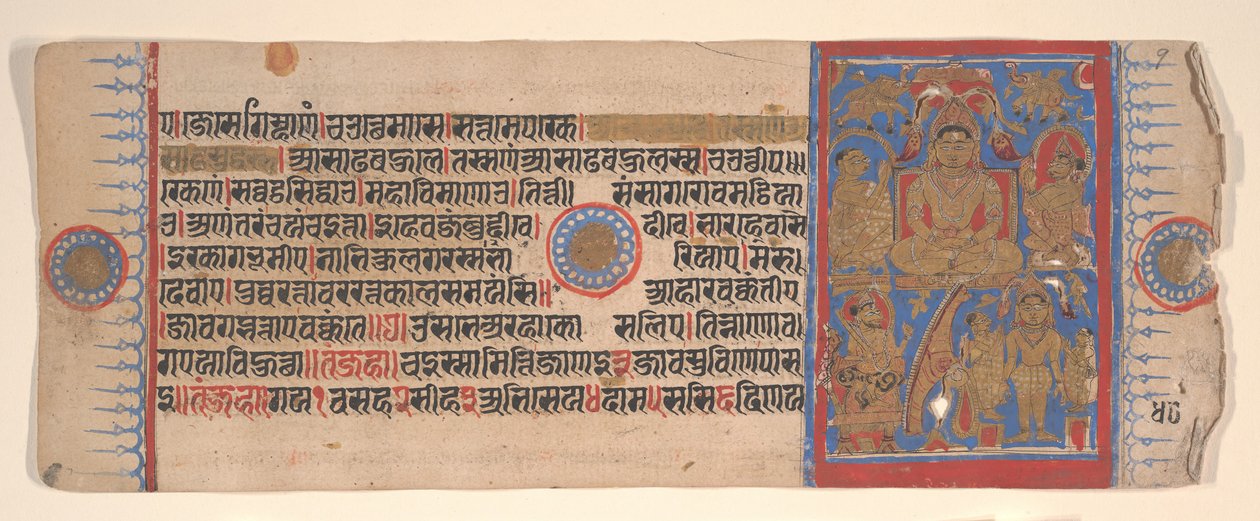 ए।जेसेगिम्हाणं।चउत्थेमासे।सत्तमेपरके।
।आसाढबहुले।तस्सणंआसाढबहुलस्स।चउत्थीप॥
रकेणं।सव्वठसिद्धाउ।महाविमाणाउ।तित्ती। संसागरोवमठिईया
उ।अणंतरंचयंचइत्ता।इहेवजंबुद्दीवे। दीवे।भारहेवासे
।इरकागभूमीए।नाभिकुलगरस्सभा रियाए।मरु
देवीए।पुव्वरत्तावरत्तकालसमयंसि॥ आहारवक्कंतीए
।जावगब्भत्ताएवक्कंते॥छ॥उसभेणअरहाको सलिए।तिन्नाणोव
गएयाविहुत्था॥तंजहा॥चइस्सामित्तिजाणइ३जावसुविणेपास
इ॥तंजहा॥गय१वसह२सीह३अभिसेय४दाम५ससि६दिणय
9